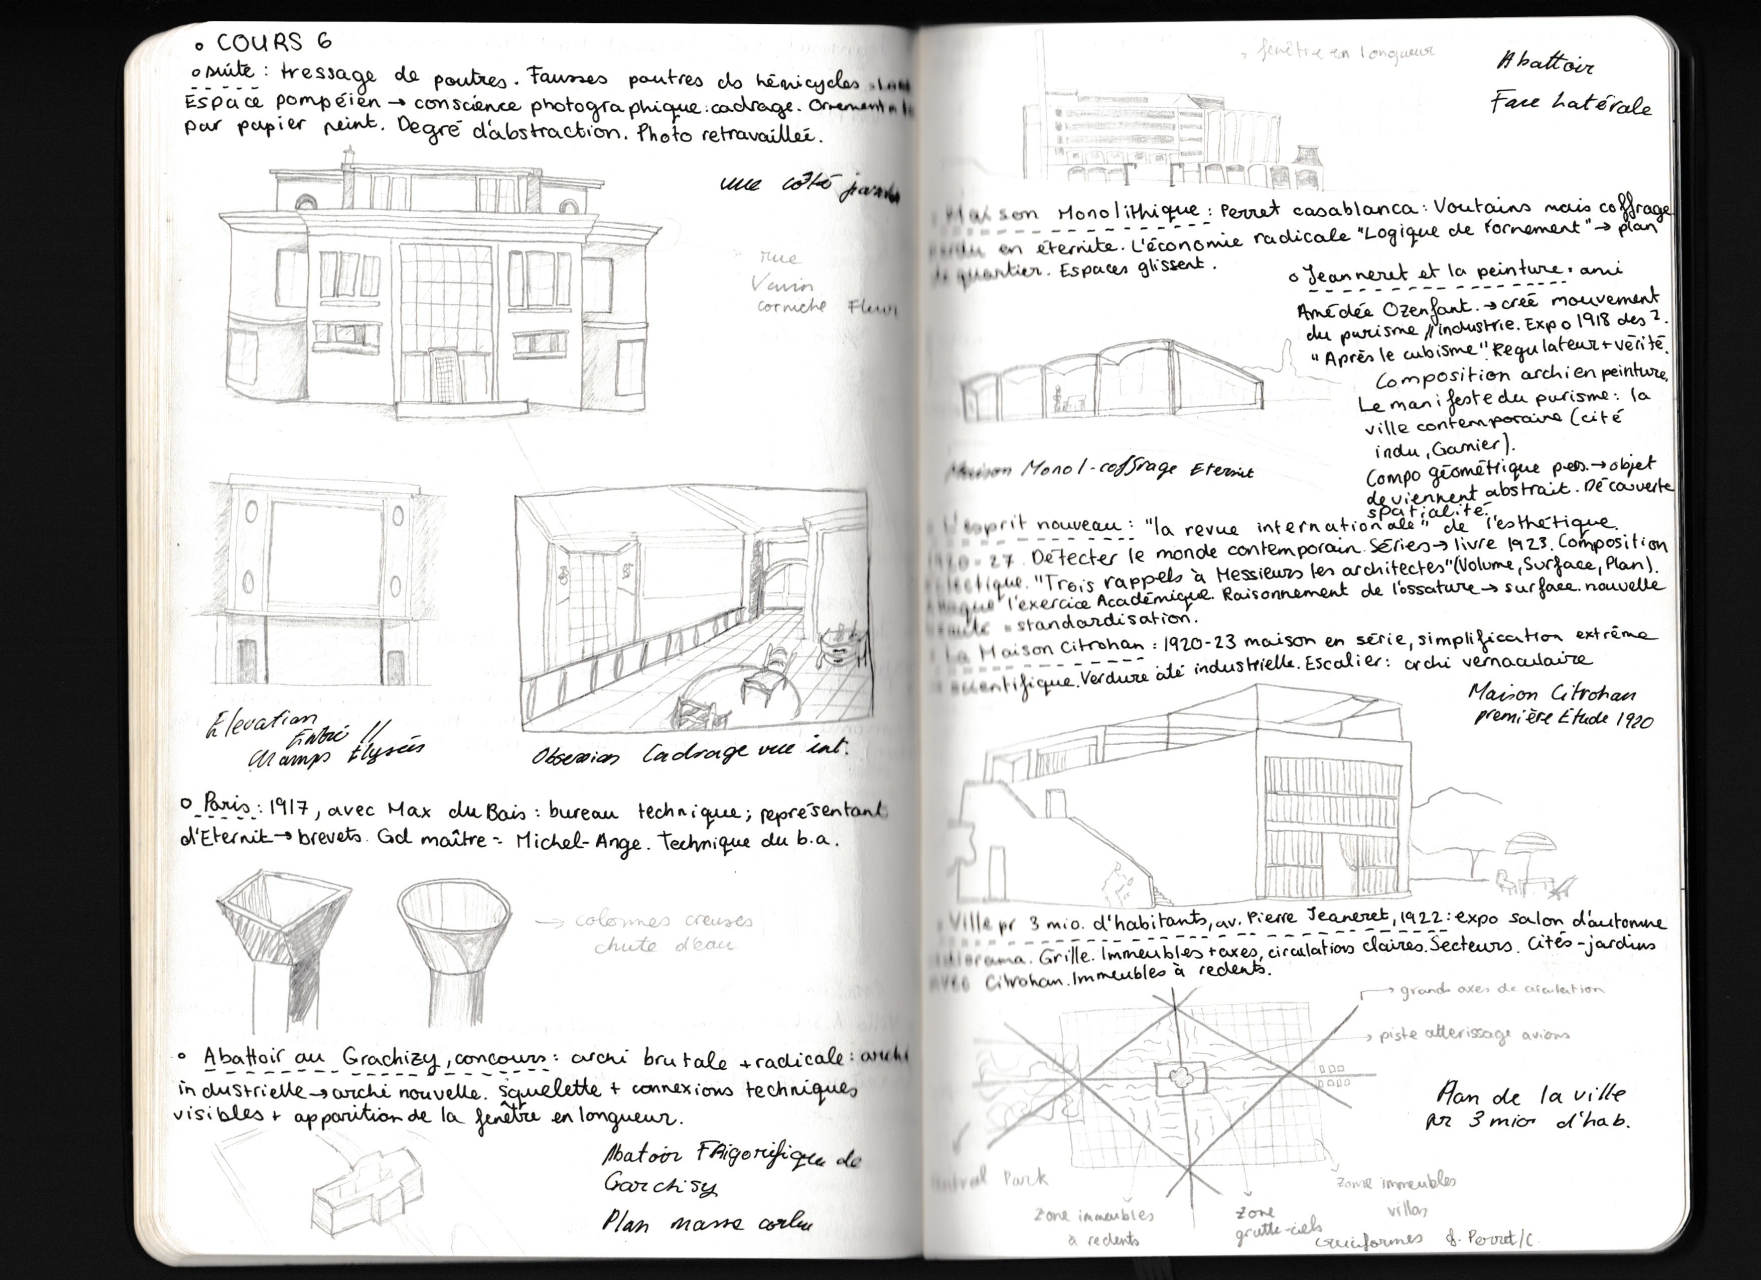 o COURS 6
o suite : tressage de poutres. Fausses poutres ds hémicycles
Espace pompéien → conscience photographique : cadrage. Ornement
par papier peint. Degré d'abstraction. Photo retravaillée.
vue côté jardin
rue
Vavin
corniche Fleuri
Elevation
Entrée //
Champs Elysées
Obsession Cadrage vue int.
o Paris : 1917, avec Max du Bois : bureau technique ; représentant
d'Eternit → brevets. Gd maître = Michel-Ange. Technique du b.a.
→ colonnes creuses
chute d'eau
o Abattoir au Grachizy, concours : archi brutale + radicale : archi
industrielle → archi nouvelle. Squelette + connexions techniques
visibles + apparition de la fenêtre en longueur.
Abatoir FRigorifique de
Garchisy
Plan masse
fenêtre en longueur
Abattoir
Face Latérale
Maison Monolithique : Perret casablanca : Voutains mais coffrage
perdu en éternite. L'économie radicale "Logique de l'ornement" → plan
de quartier. Espaces glissent.
o Jeanneret et la peinture : ami
Amédée Ozenfant. → créé mouvement
du purisme // industrie. Expo 1918 des 2.
"Après le cubisme" Regulateur + vérité.
Composition archi en peinture.
Le manifeste du purisme : la
ville contemporaine (cité
indu, Garnier).
Compo géométrique → objet
deviennent abstrait. Découverte
spatialité.
Maison Monol - coffrage Eternit
L'esprit nouveau : "la revue internationale" de l'esthétique.
1920-27. Détecter le monde contemporain. Séries → livre 1923. Composition
"Trois rappels à Messieurs les architectes" (Volume, Surface, Plan).
Attaque l'exercice Académique. Raisonnement de l'ossature → surface. nouvelle
= standardisation.
La Maison Citrohan : 1920-23 maison en série, simplification extrême
scientifique. Verdure industrielle. Escalier : archi vernaculaire
Maison Citrohan
première Etude 1920
Ville pr 3 mio. d'habitants, av. Pierre Jeaneret, 1922 : expo salon d'automne
diorama. Grille. Immeubles + axes, circulations claires. Secteurs. Cités-jardins
avec Citrohan. Immeubles à redents.
→ grands axes de circulation
→ piste atterissage avions
Plan de la ville
pr 3 mios d'hab.
Central Park
zone immeubles
à redents
zone
gratte-ciels
cruciformes
zone immeubles
villas
cf. Perret/C.